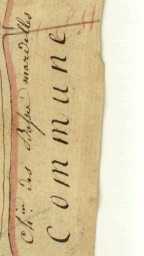 Ch.in des Basse mardelles
Commune